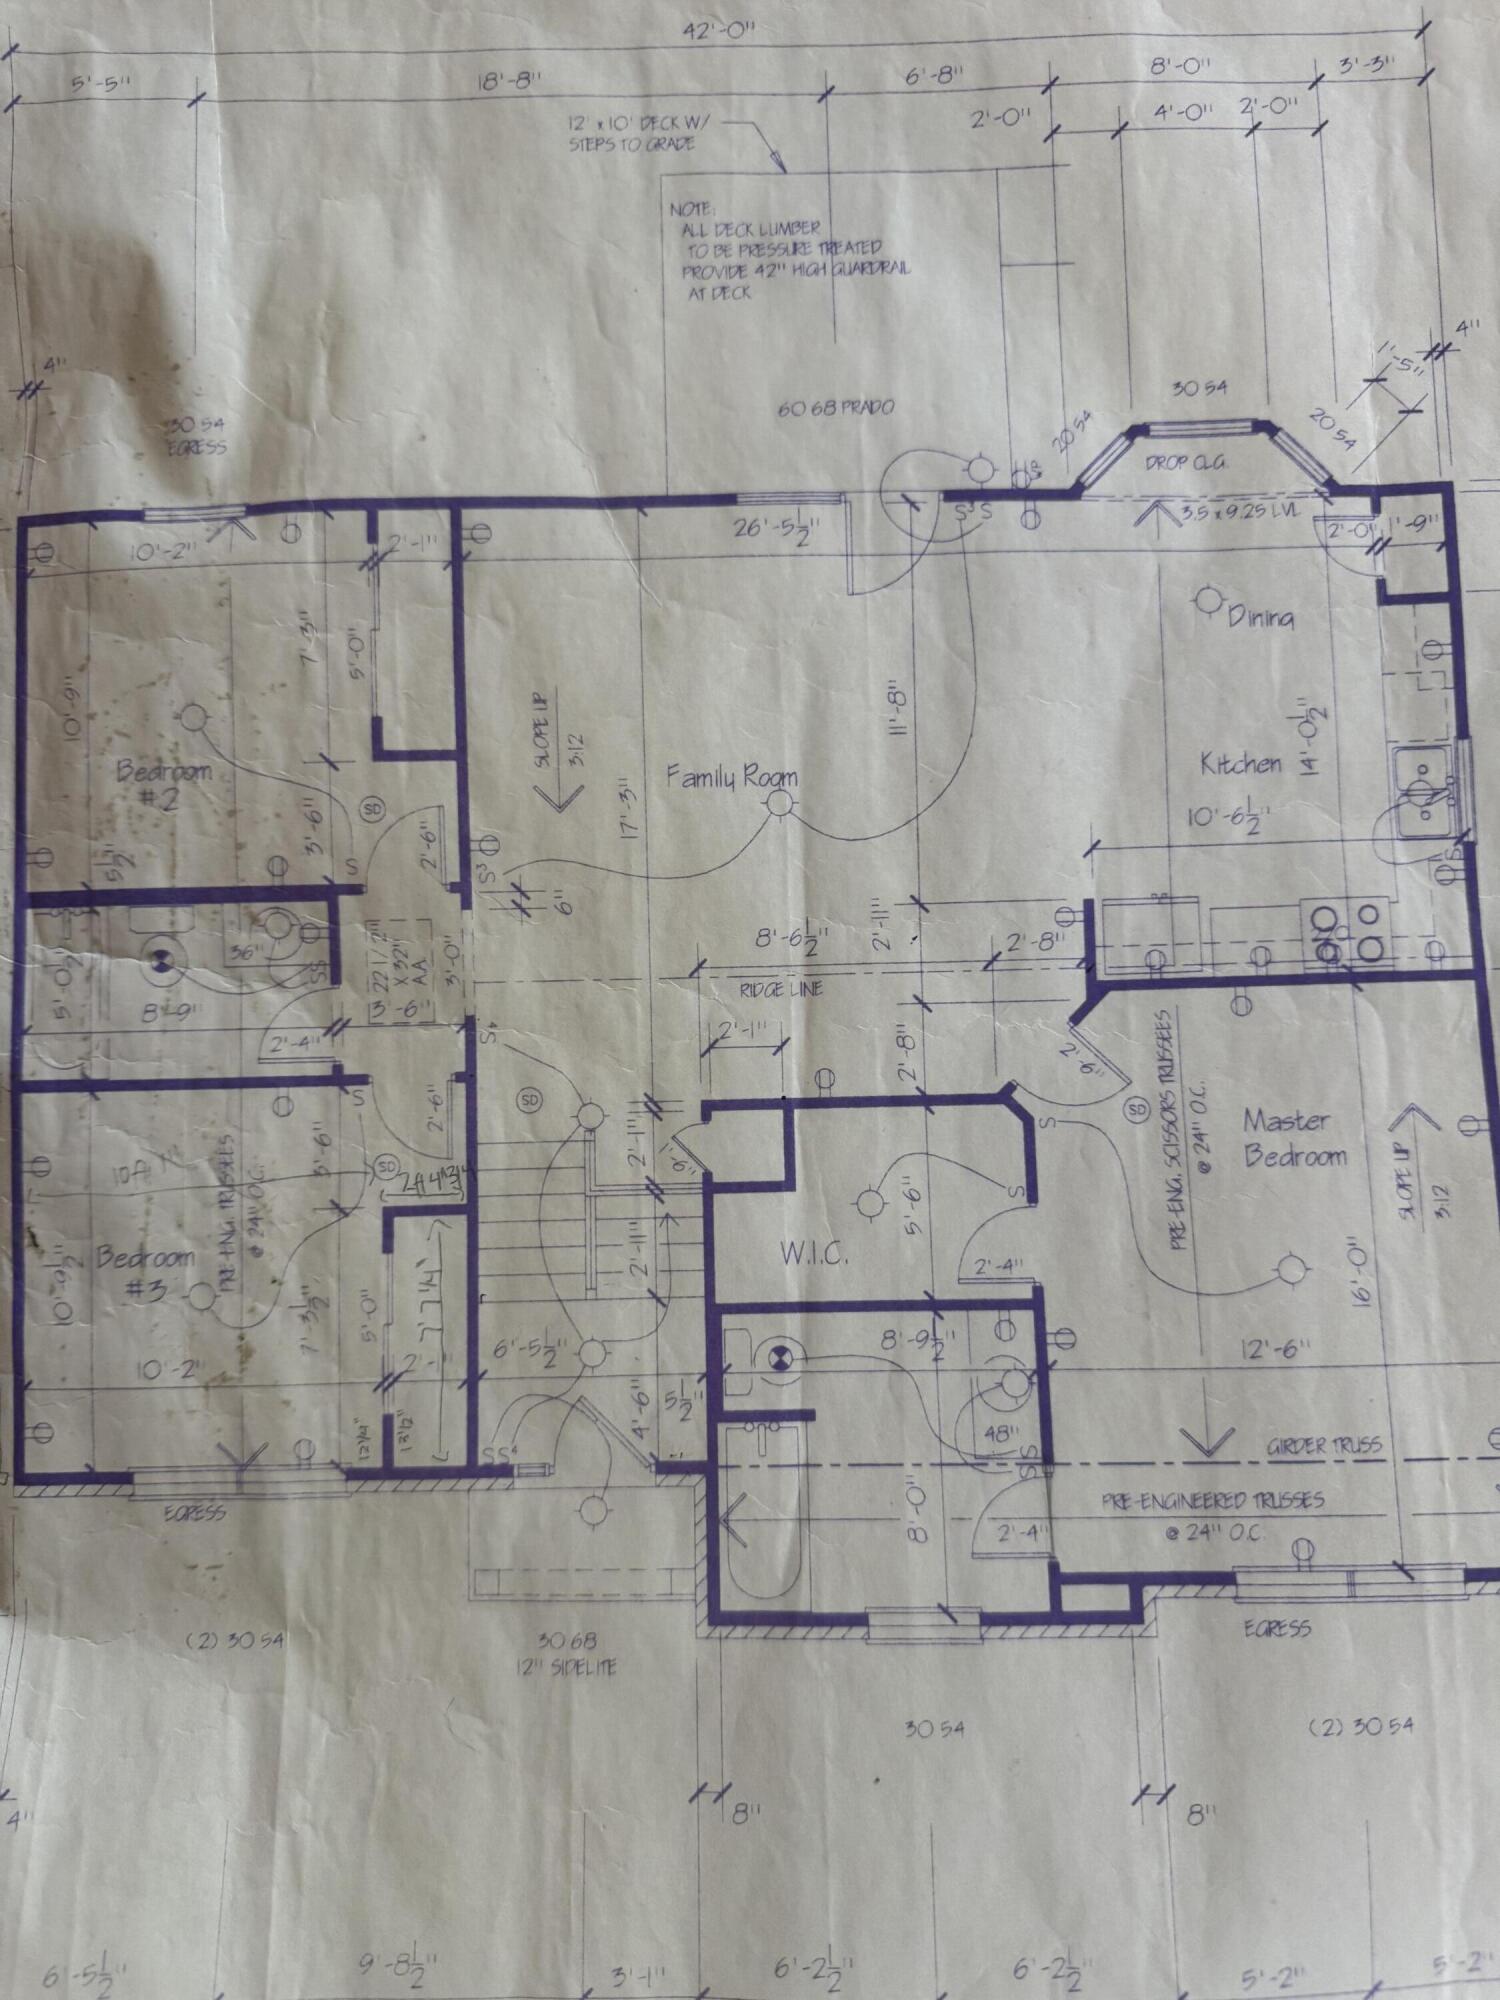 42'-0"
5'-5"
18'-8"
6'-8"
8'-0"
3'-3"
2'-0"
4'-0"
2'-0"
12' x 10' DECK W/
STEPS TO GRADE
NOTE:
ALL DECK LUMBER
TO BE PRESSURE TREATED
PROVIDE 42" HIGH GUARDRAIL
AT DECK
4"
4"
1'-5"
30 54
EGRESS
60 68 PRADO
20 54
30 54
20 54
DROP CLG.
3.5 x 9.25 LVL
10'-2"
2'-1"
26'-5 1/2"
S³ S
2'-0"
1'-9"
Dining
7'-3"
5'-0"
10'-9"
SLOPE UP
3:12
11'-8"
14'-0 1/2"
Bedroom
#2
Family Room
Kitchen
17'-3"
10'-6 1/2"
SD
3'-6"
2'-6"
5 1/2"
S
S³
S
6"
36"
22 1/2"
X 32"
AA
3'-0"
3'-6"
5'-0 1/2"
8'-9"
SS
2'-4"
8'-6 1/2"
2'-11"
2'-8"
RIDGE LINE
S⁴
2'-1"
2'-8"
2'-6"
S
2'-6"
SD
SD
S
Master
Bedroom
PRE-ENG. SCISSORS TRUSSES
@ 24" O.C.
SLOPE UP
3:12
3'-6"
SD
2'-1"
1'-6"
PRE-ENG. TRUSSES
@ 24" O.C.
Bedroom
#3
10'-9 1/2"
7'-3 1/2"
5'-0"
7' 7 1/4"
2'-11"
W.I.C.
5'-6"
S
2'-4"
16'-0"
10'-2"
2'-1"
6'-5 1/2"
8'-9 1/2"
12'-6"
4'-6"
5 1/2"
12 1/4"
13 1/2"
S S⁴
48"
SS
GIRDER TRUSS
8'-0"
2'-4"
PRE-ENGINEERED TRUSSES
@ 24" O.C.
EGRESS
EGRESS
(2) 30 54
30 68
12" SIDELITE
30 54
(2) 30 54
4"
8"
8"
6'-5 1/2"
9'-8 1/2"
3'-1"
6'-2 1/2"
6'-2 1/2"
5'-2"
5'-2"